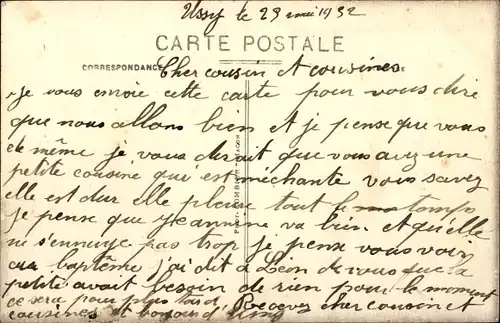 Ussy le 29 mai 1932
CARTE POSTALE
CORRESPONDANCE
Cher cousin et cousines
je vous envoie cette carte pour vous dire
que nous allons bien et je pense que vous
de même je vous dirait que vous avez une
petite cousine qui est méchante vous savez
elle est dur elle pleure tout le temps
je pense que Jeannine va bien et qu'elle
ne s'ennuie pas trop je pense vous voir
au baptême j'ai dit à Léon de vous que la
petite avait besoin de rien pour le moment
ce sera pour plus tard. Recevez cher cousin et
cousines et bonjour d'Ussy